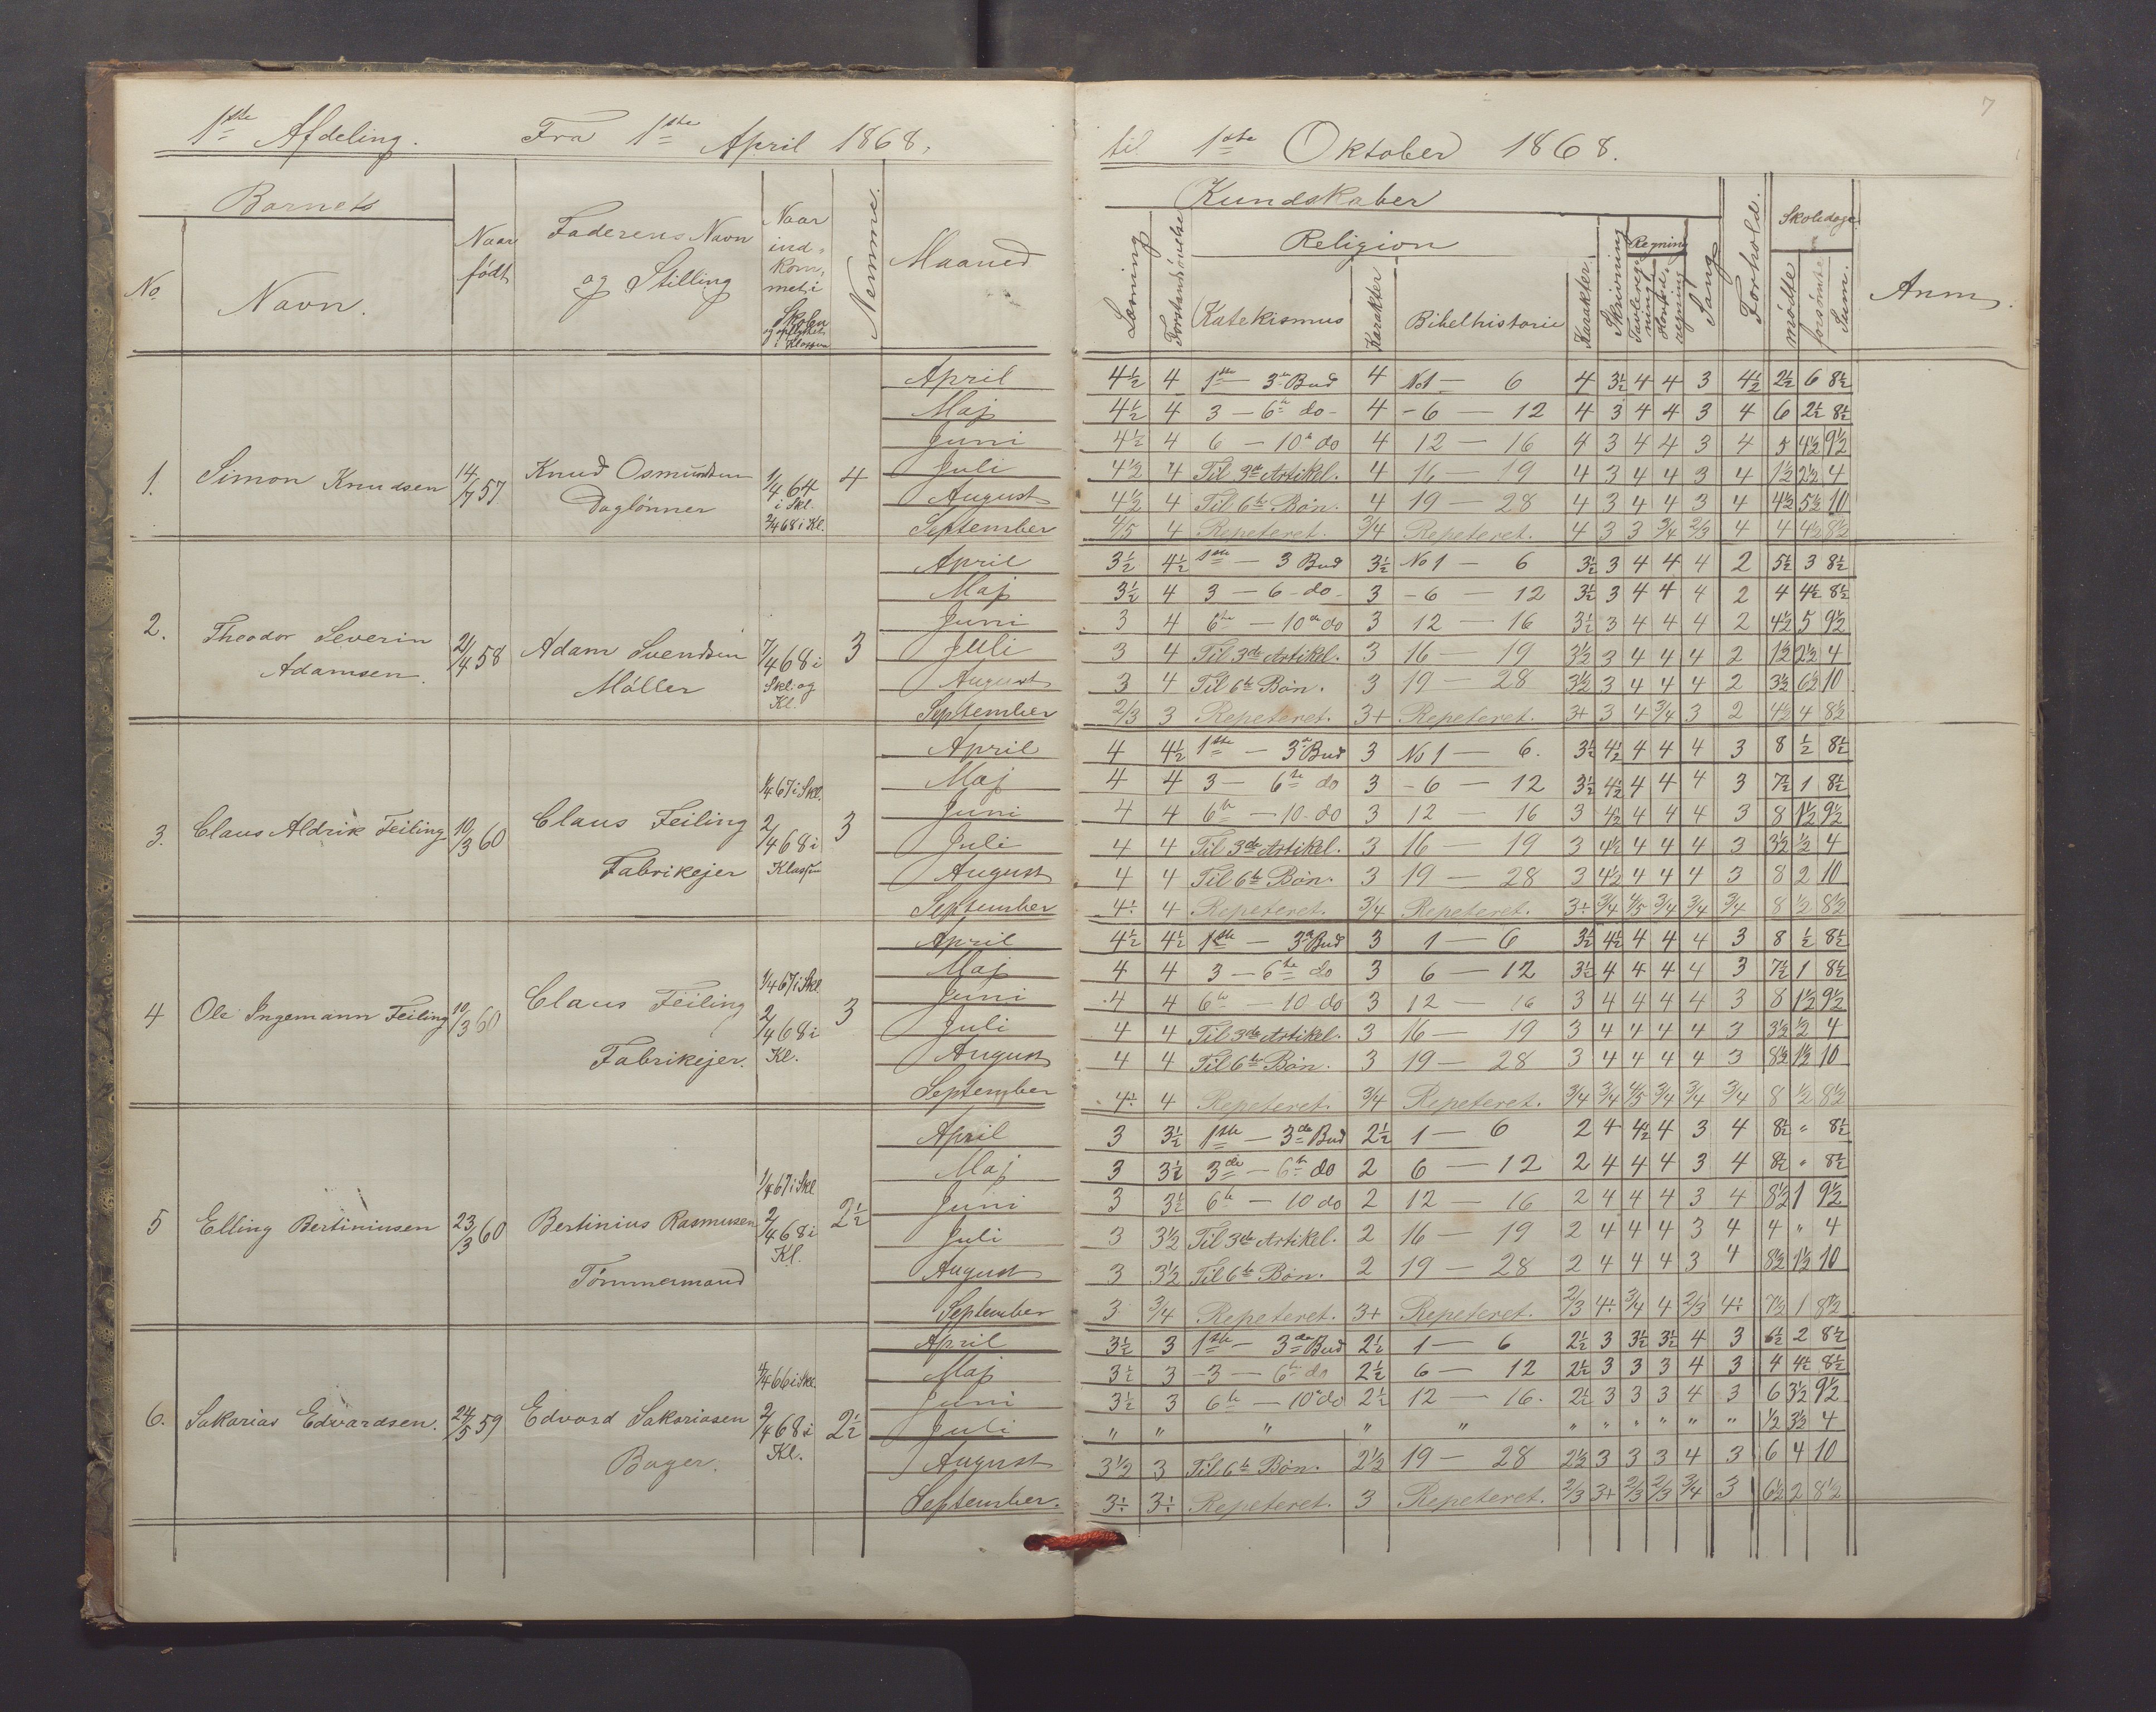 7
1ste Afdeling. Fra 1ste April 1868, til 1ste Oktober 1868.
Barnets
No Navn.
Naar født
Faderens Navn og Stilling
Naar ind-
kom-
met i
Skolen
og opflyttet
i Klassen
Nemme.
Maaned
Kundskaber
Læsning
Forstandsøvelse
Religion
Katekismus
Karakter
Bibelhistorie
Karakter
Skrivning
Regning
Tavlereg-
ning
Hoved-
regning
Sang
Forhold.
Skoledage
mødte
forsømte
Sum.
Anm.
1. Simon Knudsen 14/7 57 Knud Osmundsen Daglønner 1/4 64 i Skl. 2/4 68 i Kl. 4
April 4½ 4 1ste — 3die Bud 4 No 1 — 6 4 3½ 4 4 3 4½ 2½ 6 8½
Maj 4½ 4 3 — 6te do 4 - 6 — 12 4 3 4 4 3 4 6 2½ 8½
Juni 4½ 4 6 — 10de do 4 12 — 16 4 3 4 4 3 4 5 4½ 9½
Juli 4½ 4 Til 3die Artikel. 4 16 — 19 4 3 4 4 3 4 1½ 2½ 4
August 4½ 4 Til 6te Bøn. 4 19 — 28 4 3 4 4 3 4 4½ 5½ 10
September 4/5 4 Repeteret. 3/4 Repeteret. 4 3 3 3/4 2/3 4 4 4½ 8½
2. Theodor Severin Adamsen. 21/4 58 Adam Svendsen Møller 7/4 68 i Skl. og Kl. 3
April 3½ 4½ 1ste — 3 Bud 3½ No 1 — 6 3½ 3 4 4 4 2 5½ 3 8½
Maj 3½ 4 3 — 6 do 3 - 6 — 12 3½ 3 4 4 4 2 4 4½ 8½
Juni 3 4 6te — 10de do 3 12 — 16 3½ 3 4 4 4 2 4½ 5 9½
Juli 3 4 Til 3die Artikel. 3 16 — 19 3½ 3 4 4 4 2 1½ 2½ 4
August 3 4 Til 6te Bøn. 3 19 — 28 3½ 3 4 4 4 2 3½ 6½ 10
September 2/3 3 Repeteret. 3+ Repeteret. 3+ 3 4 3/4 3 2 4½ 4 8½
3. Claus Aldrik Feiling 10/3 60 Claus Feiling Fabrikejer 1/4 67 i Skl. 2/4 68 i Klassen 3
April 4 4½ 1ste — 3die Bud 3 No 1 — 6. 3½ 4½ 4 4 4 3 8 ½ 8½
Maj 4 4 3 — 6te do 3 - 6 — 12 3½ 4½ 4 4 4 3 7½ 1 8½
Juni 4 4 6te — 10 do 3 12 — 16 3 4½ 4 4 4 3 8 1½ 9½
Juli 4 4 Til 3die Artikel. 3 16 — 19 3 4½ 4 4 4 3 3½ ½ 4
August 4 4 Til 6te Bøn. 3 19 — 28 3 4½ 4 4 4 3 8 2 10
September 4÷ 4 Repeteret. 3/4 Repeteret. 3÷ 3/4 4/5 3/4 3/4 3/4 8 ½ 8½
4 Ole Ingemann Feiling 10/3 60 Claus Feiling Fabrikejer. 1/4 67 i Skl 2/4 68 i Kl. 3
April 4½ 4½ 1ste — 3die Bud 3 1 — 6 3½ 4½ 4 4 4 3 8 ½ 8½
Maj 4 4 3 — 6te do 3 6 — 12 3½ 4 4 4 4 3 7½ 1 8½
Juni 4 4 6te — 10 do 3 12 — 16 3 4 4 4 4 3 8 1½ 9½
Juli 4 4 Til 3die Artikel. 3 16 — 19 3 4 4 4 4 3 3½ ½ 4
August 4 4 Til 6te Bøn. 3 19 — 28 3 4 4 4 4 3 8½ 1½ 10
September 4÷ 4 Repeteret. 3/4 Repeteret. 3/4 3/4 4/5 3/4 3/4 3/4 8 ½ 8½
5 Elling Bertiniusen 23/3 60 Bertinius Rasmusen Tømmermand 1/4 67 i Skl 2/4 68 i Kl. 2½
April 3 3½ 1ste — 3die Bud 2½ 1 — 6 2 4 4½ 4 3 4 8½ " 8½
Maj 3 3½ 3die — 6te do 2 6 — 12 2 4 4 4 3 4 8½ " 8½
Juni 3 3½ 6te — 10 do 2 12 — 16 2 4 4 4 3 4 8½ 1 9½
Juli 3 3½ Til 3die Artikel. 2 16 — 19 2 4 4 4 3 4 4 " 4
August 3 3½ Til 6te Bøn. 2 19 — 28 2 4 4 4 3 4 8½ 1½ 10
September 3 3/4 Repeteret. 3+ Repeteret. 2/3 4÷ 3/4 4 2/3 4÷ 7½ 1 8½
6. Sakarias Edvardsen. 24/5 59 Edvard Sakariasen Bager. 4/4 66 i Skl. 2/4 68 i Kl. 2½
April 3½ 3 1ste — 3die Bud 2½ 1 — 6 2½ 3 3½ 3½ 4 3 6½ 2 8½
Maj 3½ 3 - 3 — 6te do 2½ 6 — 12 2½ 3 3 3 4 3 4 4½ 8½
Juni 3½ 3 6te — 10de do 2½ 12 — 16. 2½ 3 3 3 4 3 6 3½ 9½
Juli " " " " " " " " " " " ½ 3½ 4
August 3½ 3 Til 6te Bøn. 2½ 19 — 28 2½ 3 3 3 4 3 6 4 10
September. 3÷ 3÷ Repeteret. 3 Repeteret. 2/3 3+ 2/3 2/3 3/4 3 6½ 2 8½